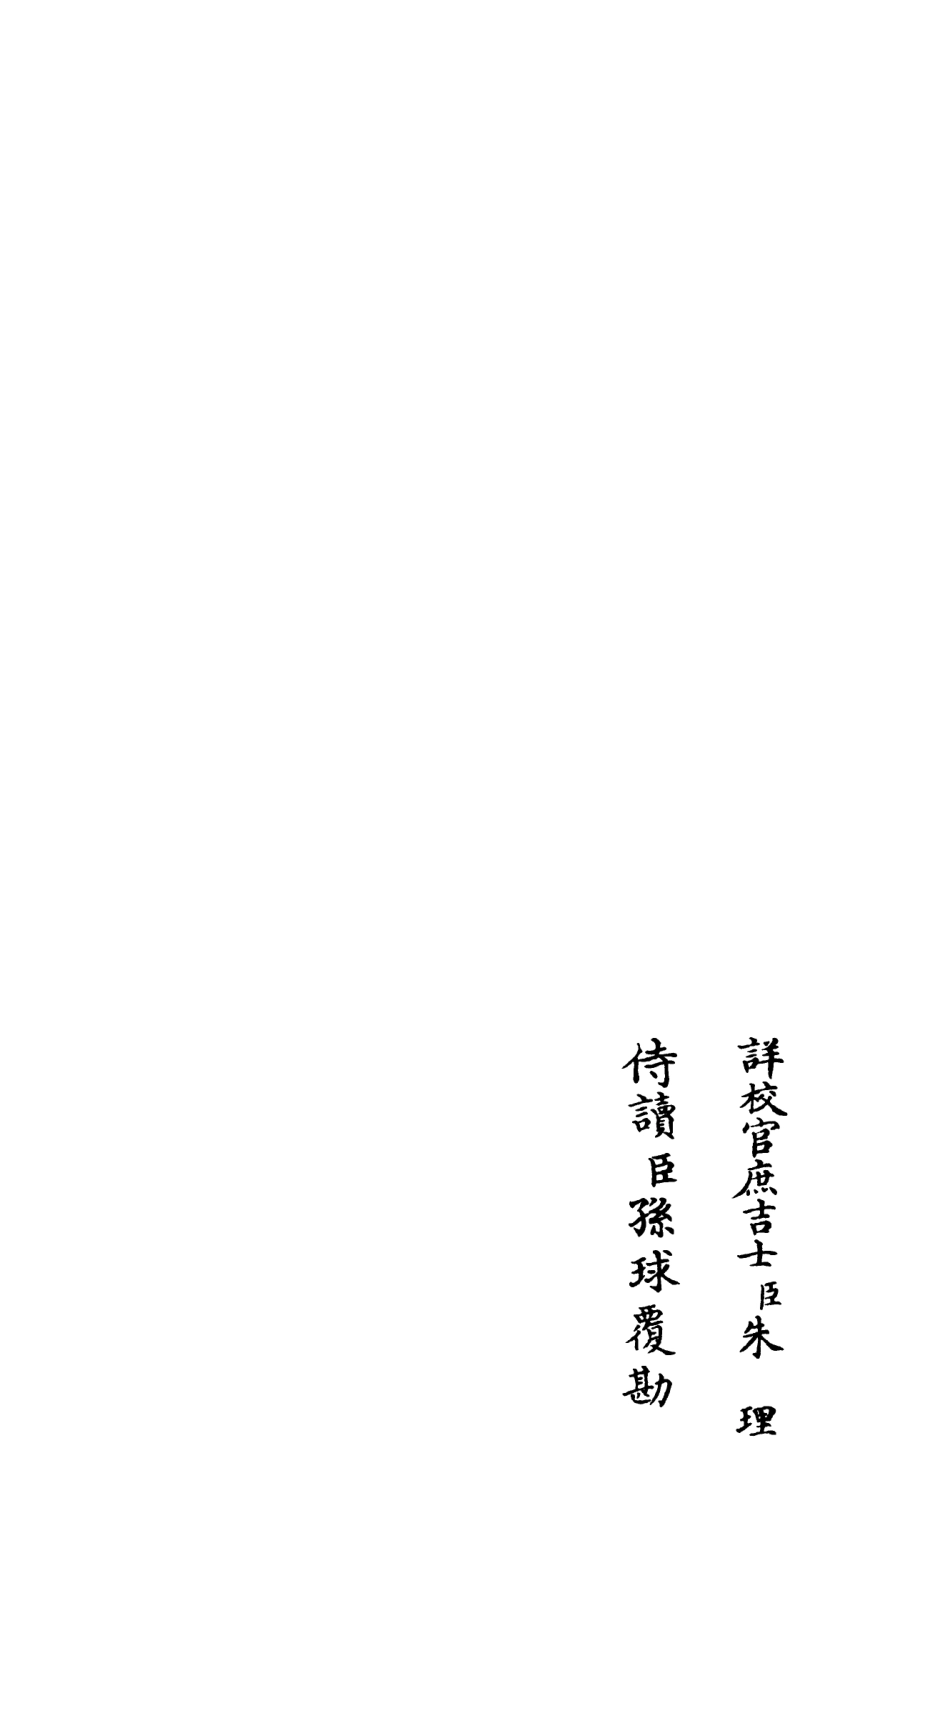 詳校官庶吉士臣朱理
侍讀臣孫球覆勘